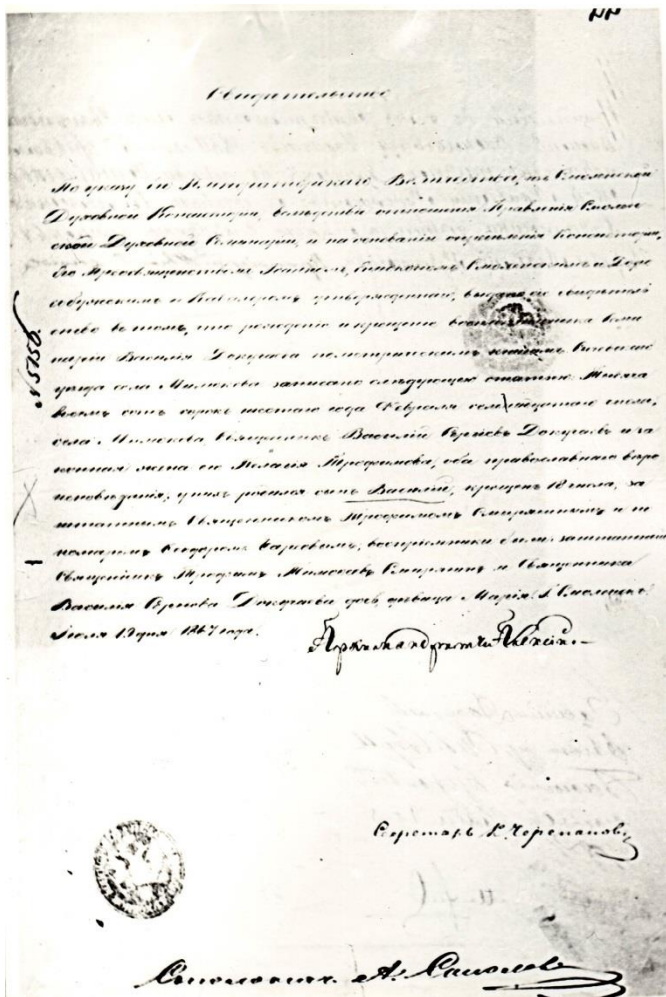 Свидетельство
По указу Его Императорскаго Величества, изъ Смоленской
Духовной Консисторіи, вслѣдствіе отношенія Правленія Смолен-
ской Духовной Семинаріи, и на основаніи опредѣленія Консисторіи,
Его Преосвященствомъ Іоанномъ, Епископомъ Смоленскимъ и Доро-
гобужскимъ и Кавалеромъ утвержденнаго, выдано сіе свидѣтель-
ство въ томъ, что рожденіе и крещеніе воспитанника Семи
наріи Василія Докучаева по метрическимъ книгамъ
уѣзда села Милюкова записано слѣдующею статьею: Тысяча
восемь сотъ сорокъ шестаго года Февраля семнадцатаго числа,
села Милюкова, Священникъ Василій Сергѣевъ Докучаевъ и за
конная жена его Пелагія Трофимова, оба православнаго вѣро
исповѣданія, у нихъ родился сынъ Василій, крещенъ 18 числа, за
штатнымъ Священникомъ Трофимомъ и по
номаремъ воспріемники были: заштатный
Священникъ Трофимъ Тимофеевъ и Священника
Василія Сергѣева Докучаева дочь дѣвица Марія. Г. Смоленскъ.
Іюля 19 дня 1867 года.
№ 5756.
Архимандритъ
Секретарь К. Черепановъ
Столоначал. А. Соколовъ